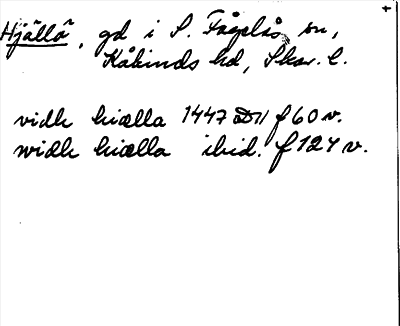 Hjällö, gd i S. Fågelås sn,
Kåkinds hd, Skar. l.
vidh hiælla 1447 f 60 v.
widh hiælla ibid. f 124 v.